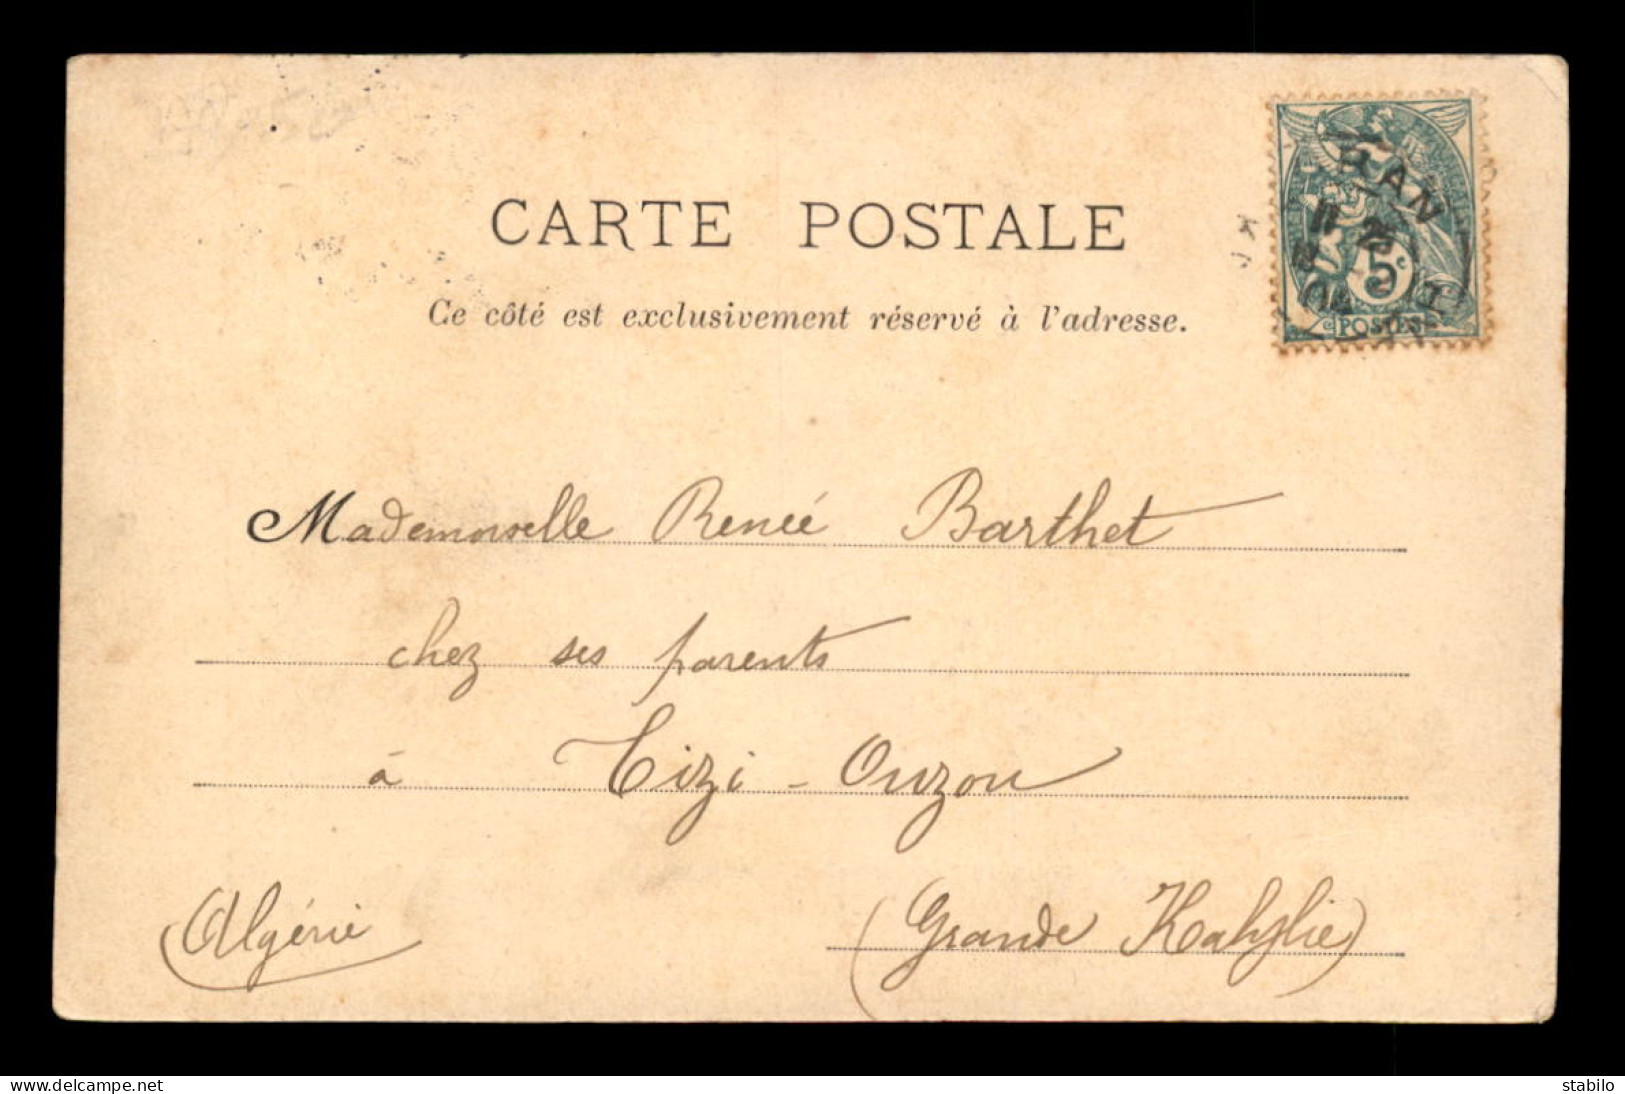 CARTE POSTALE
Ce côté est exclusivement réservé à l'adresse.
RAN
11
25
04
5c
POSTES
Mademoiselle Renée Barthet
chez ses parents
à Tizi-Ouzou
(Grande Kabylie)
Algérie
www.delcampe.net
stabilo